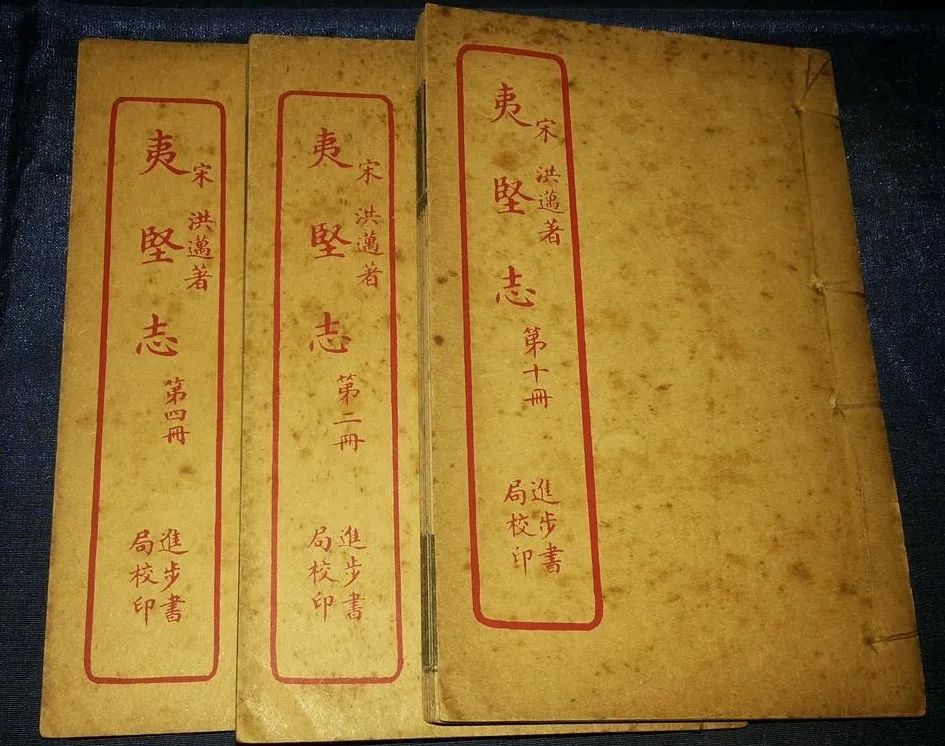 宋 洪邁著
夷堅志 第十冊
進步書
局校印
宋 洪邁著
夷堅志 第二冊
進步書
局校印
宋 洪邁著
夷堅志 第四冊
進步書
局校印